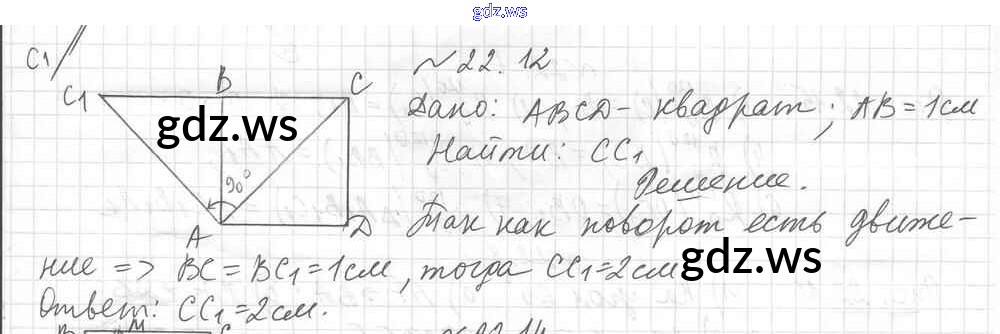 gdz.ws
C1
№22.12
C1 B C
Дано: ABCD - квадрат; AB = 1см
gdz.ws
Найти: CC1
90°
Решение.
A D Так как поворот есть движе-
gdz.ws
ние => BC = BC1 = 1см, тогда CC1 = 2см
Ответ: CC1 = 2см.
M